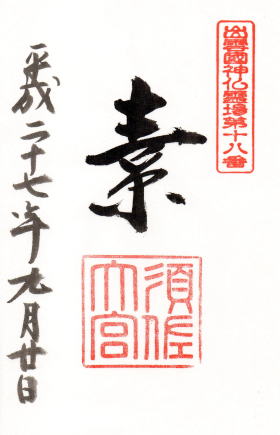 出雲國神仏霊場第十八番
素
須佐
大宮
平成二十七年九月廿日